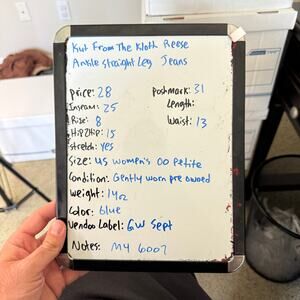 Kut From The Kloth Reese
Ankle Straight Leg Jeans
Price: 28 Poshmark: 31
Inseam: 25 Length:
Rise: 8 Waist: 13
Hip2Hip: 15
Stretch: Yes
Size: US Women's 00 Petite
Condition: Gently worn pre owned
Weight: 14oz
Color: blue
Vendoo Label: GW Sept
Notes: MY 6007